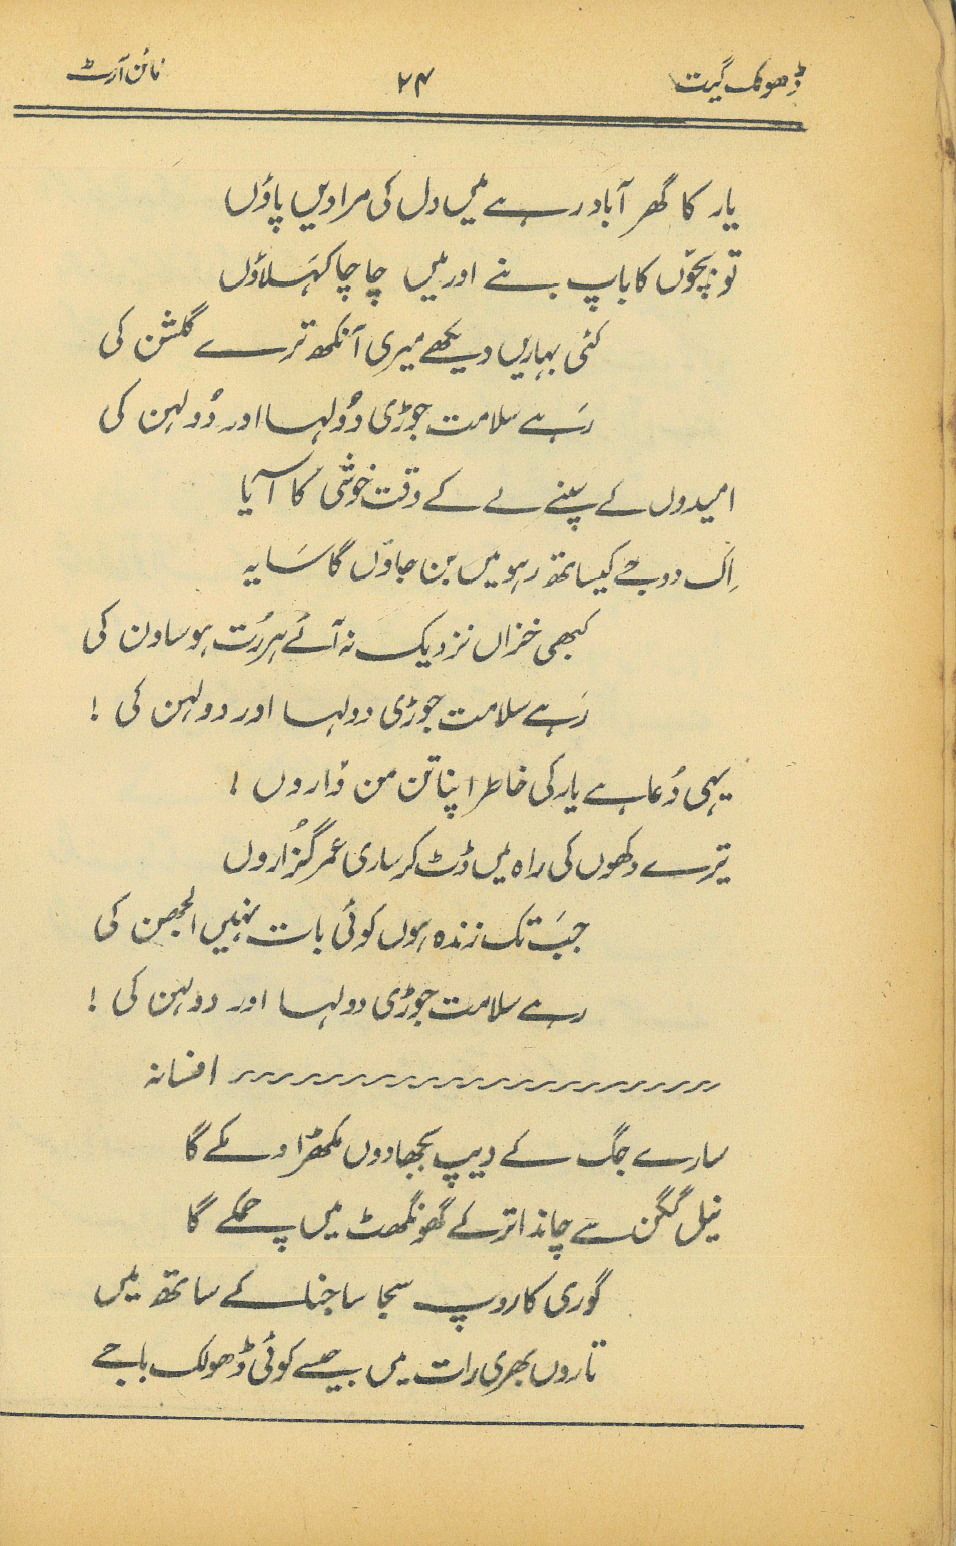 ڈھولک گیت ۲۴ فائن آرٹ
یار کا گھر آباد رہے میں دل کی مرادیں پاؤں
تو بچّوں کا باپ بنے اور میں چاچا کہَلاؤں
کئی بہاریں دیکھے میری آنکھ ترے گلشن کی
رَہے سلامت جوڑی دُولہا اور دُولہن کی
امیدوں کے سپنے لے کے وقت خوشی کا آیا
اِک دوجے کیساتھ رہو میں بن جاؤں گا سَایہ
کبھی خزاں نزدیک نہ آئے ہر رُت ہو ساون کی
رَہے سلامت جوڑی دولہا اور دولہن کی !
یہی دُعا ہے یار کی خاطر اپنا تن من وَاروں !
تیرے دکھوں کی راہ میں ڈٹ کر ساری عمر گزُاروں
جبَ تک زندہ ہوں کوئی بات نہیں الجھن کی
رہے سلامت جوڑی دولہا اور دولہن کی !
افسانہ
سارے جگ کے دیپ بجھادوں مکھڑا دمکے گا
نیل گگن سے چاند اتر کے گھونگھٹ میں چمکے گا
گوری کا روپ سجا ساجنا کے ساتھ میں
تاروں بھری رات میں جیسے کوئی ڈھولک باجے